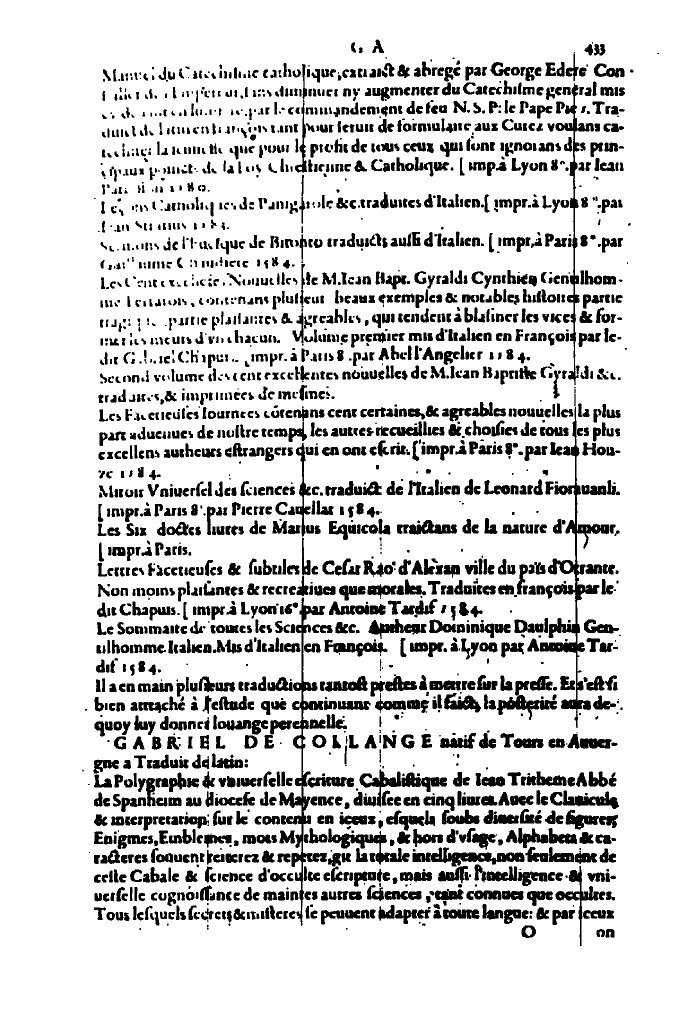 G A 433
Manuel du Catechisme catholique, extraict & abregé par George Edere Con-
ny augmenter du Catechisme general mis
par le commandement de feu N. S. P. le Pape Pie 5. Tra-
tant pour seruir de formulaire aux Curez voulans ca-
que pour le profit de tous ceux qui sont ignorans des prin-
cipaux poincts de la Foy Chrestienne & Catholique. [imp. à Lyon 8°. par Iean
1580.
Leçons Catholiques de Panigarole &c. traduites d'Italien. [impr. à Lyon 8°. par
Iean Stratius 1584.
Sermons de l'Euesque de Bitonto traduicts aussi d'Italien. [impr, à Paris 8°. par
Guillaume Chaudiere 1584.
Les Cent excellentes Nouuelles de M. Iean Bapt. Gyraldi Cynthien Gentilhom-
me Ferrarois, contenans plusieurs beaux exemples & notables histoires partie
tragiques, partie plaisantes & agreables, qui tendent à blasmer les vices & for-
mer les meurs d'vn chacun. Volume premier mis d'Italien en François par le-
dit Gabriel Chapuis. [impr. à Paris 8. par Abel l'Angelier 1584.
Second volume des cent excellentes nouuelles de M. Iean Baptiste Gyraldi &c.
traduites, & imprimées de mesmes.
Les Facetieuses Iournees cõtenans cent certaines, & agreables nouuelles la plus
part aduenues de nostre temps, les autres recueillies & choisies de tous les plus
excellens autheurs estrangers qui en ont escrit. [impr. à Paris 8°. par Iean Hou-
zé 1584.
Miroir Vniuersel des sciences &c. traduict de l'Italien de Leonard Fiorauanti.
[impr. à Paris 8°. par Pierre Cauellat 1584.
Les Six doctes liures de Marius Equicola traictans de la nature d'Amour,
[impr. à Paris.
Lettres Facetieuses & subtiles de Cesar Rao d'Alexan ville du païs d'Otrante.
Non moins plaisantes & recreatiues que morales. Traduites en françois par le
dit Chapuis. [impr. à Lyon 16°. par Antoine Tardif 1584.
Le Sommaire de toutes les Sciences &c. Autheur Dominique Daulphin Gen-
tilhomme Italien. Mis d'Italien en François. [impr. à Lyon par Antoine Tar-
dif 1584.
Il a en main plusieurs traductions tantost prestes à mettre sur la presse. Et s'est si
bien attaché à l'estude que continuant comme il faict, la posterité aura de-
quoy luy donner louange perennelle.
GABRIEL DE COLLANGE natif de Tours en Auuer-
gne a Traduit de latin:
La Polygraphie & vniuerselle escriture Cabalistique de Iean Tritheme Abbé
de Spanheim au diocese de Mayence, diuisee en cinq liures. Auec le Clauicule
& interpretation sur le contenu en iceux, esquels soubs diuersité de figures,
Enigmes, Emblemes, mots Mythologiques, & hors d'vsage, Alphabets & ca-
racteres souuent reiterez & repetez, git la totale intelligence, non seulement de
ceste Cabale & science d'occulte escripture, mais aussi l'intelligence & vni-
uerselle cognoissance de maintes autres sciences, tant connues que occultes.
Tous lesquels secrets & misteres se peuuent adapter à toute langue: & par iceux
O on